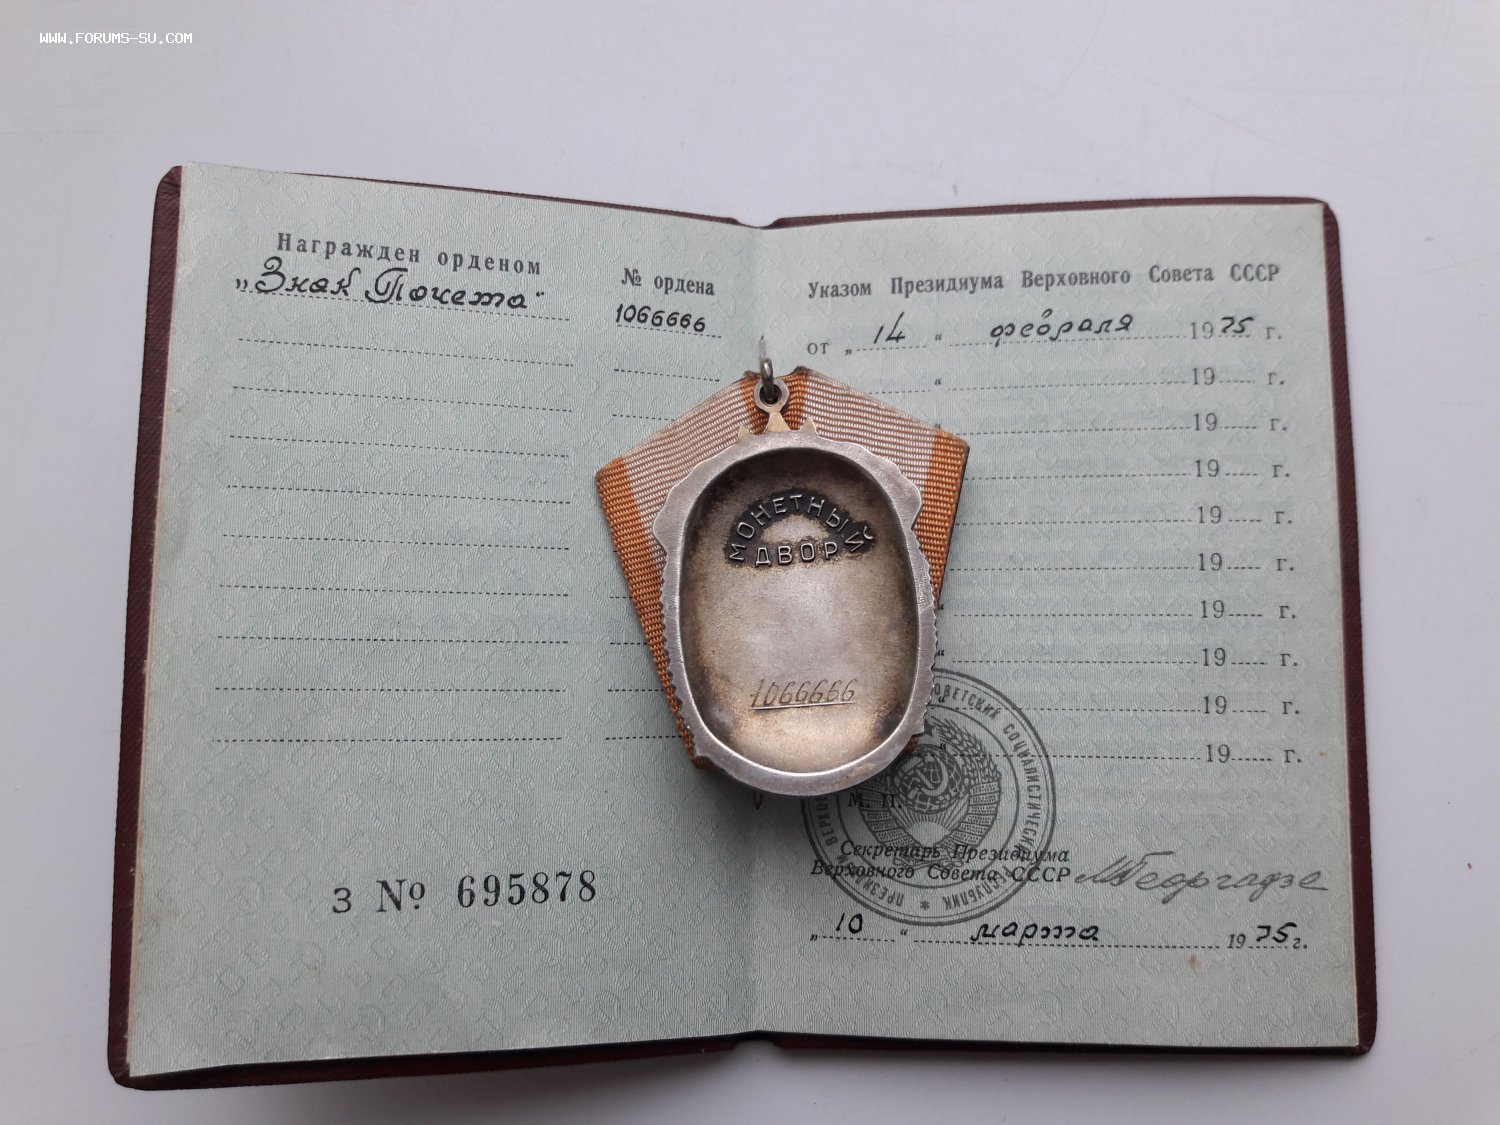 WWW.FORUMS-SU.COM
Награжден орденом
„Знак Почета“
№ ордена
1066666
Указом Президиума Верховного Совета СССР
от „ 14 “ февраля 1975 г.
“ 19 г.
“ 19 г.
19 г.
19 г.
19 г.
“ 19 г.
“ 19 г.
“ 19 г.
“ 19 г.
МОНЕТНЫЙ
ДВОР
1066666
М. П.
Секретарь Президиума
Верховного Совета СССР МГеоргадзе
„ 10 “ марта 1975 г.
З № 695878
СОВЕТСКИХ СОЦИАЛИСТИЧЕСКИХ РЕСПУБЛИК * ПРЕЗИДИУМ ВЕРХОВ